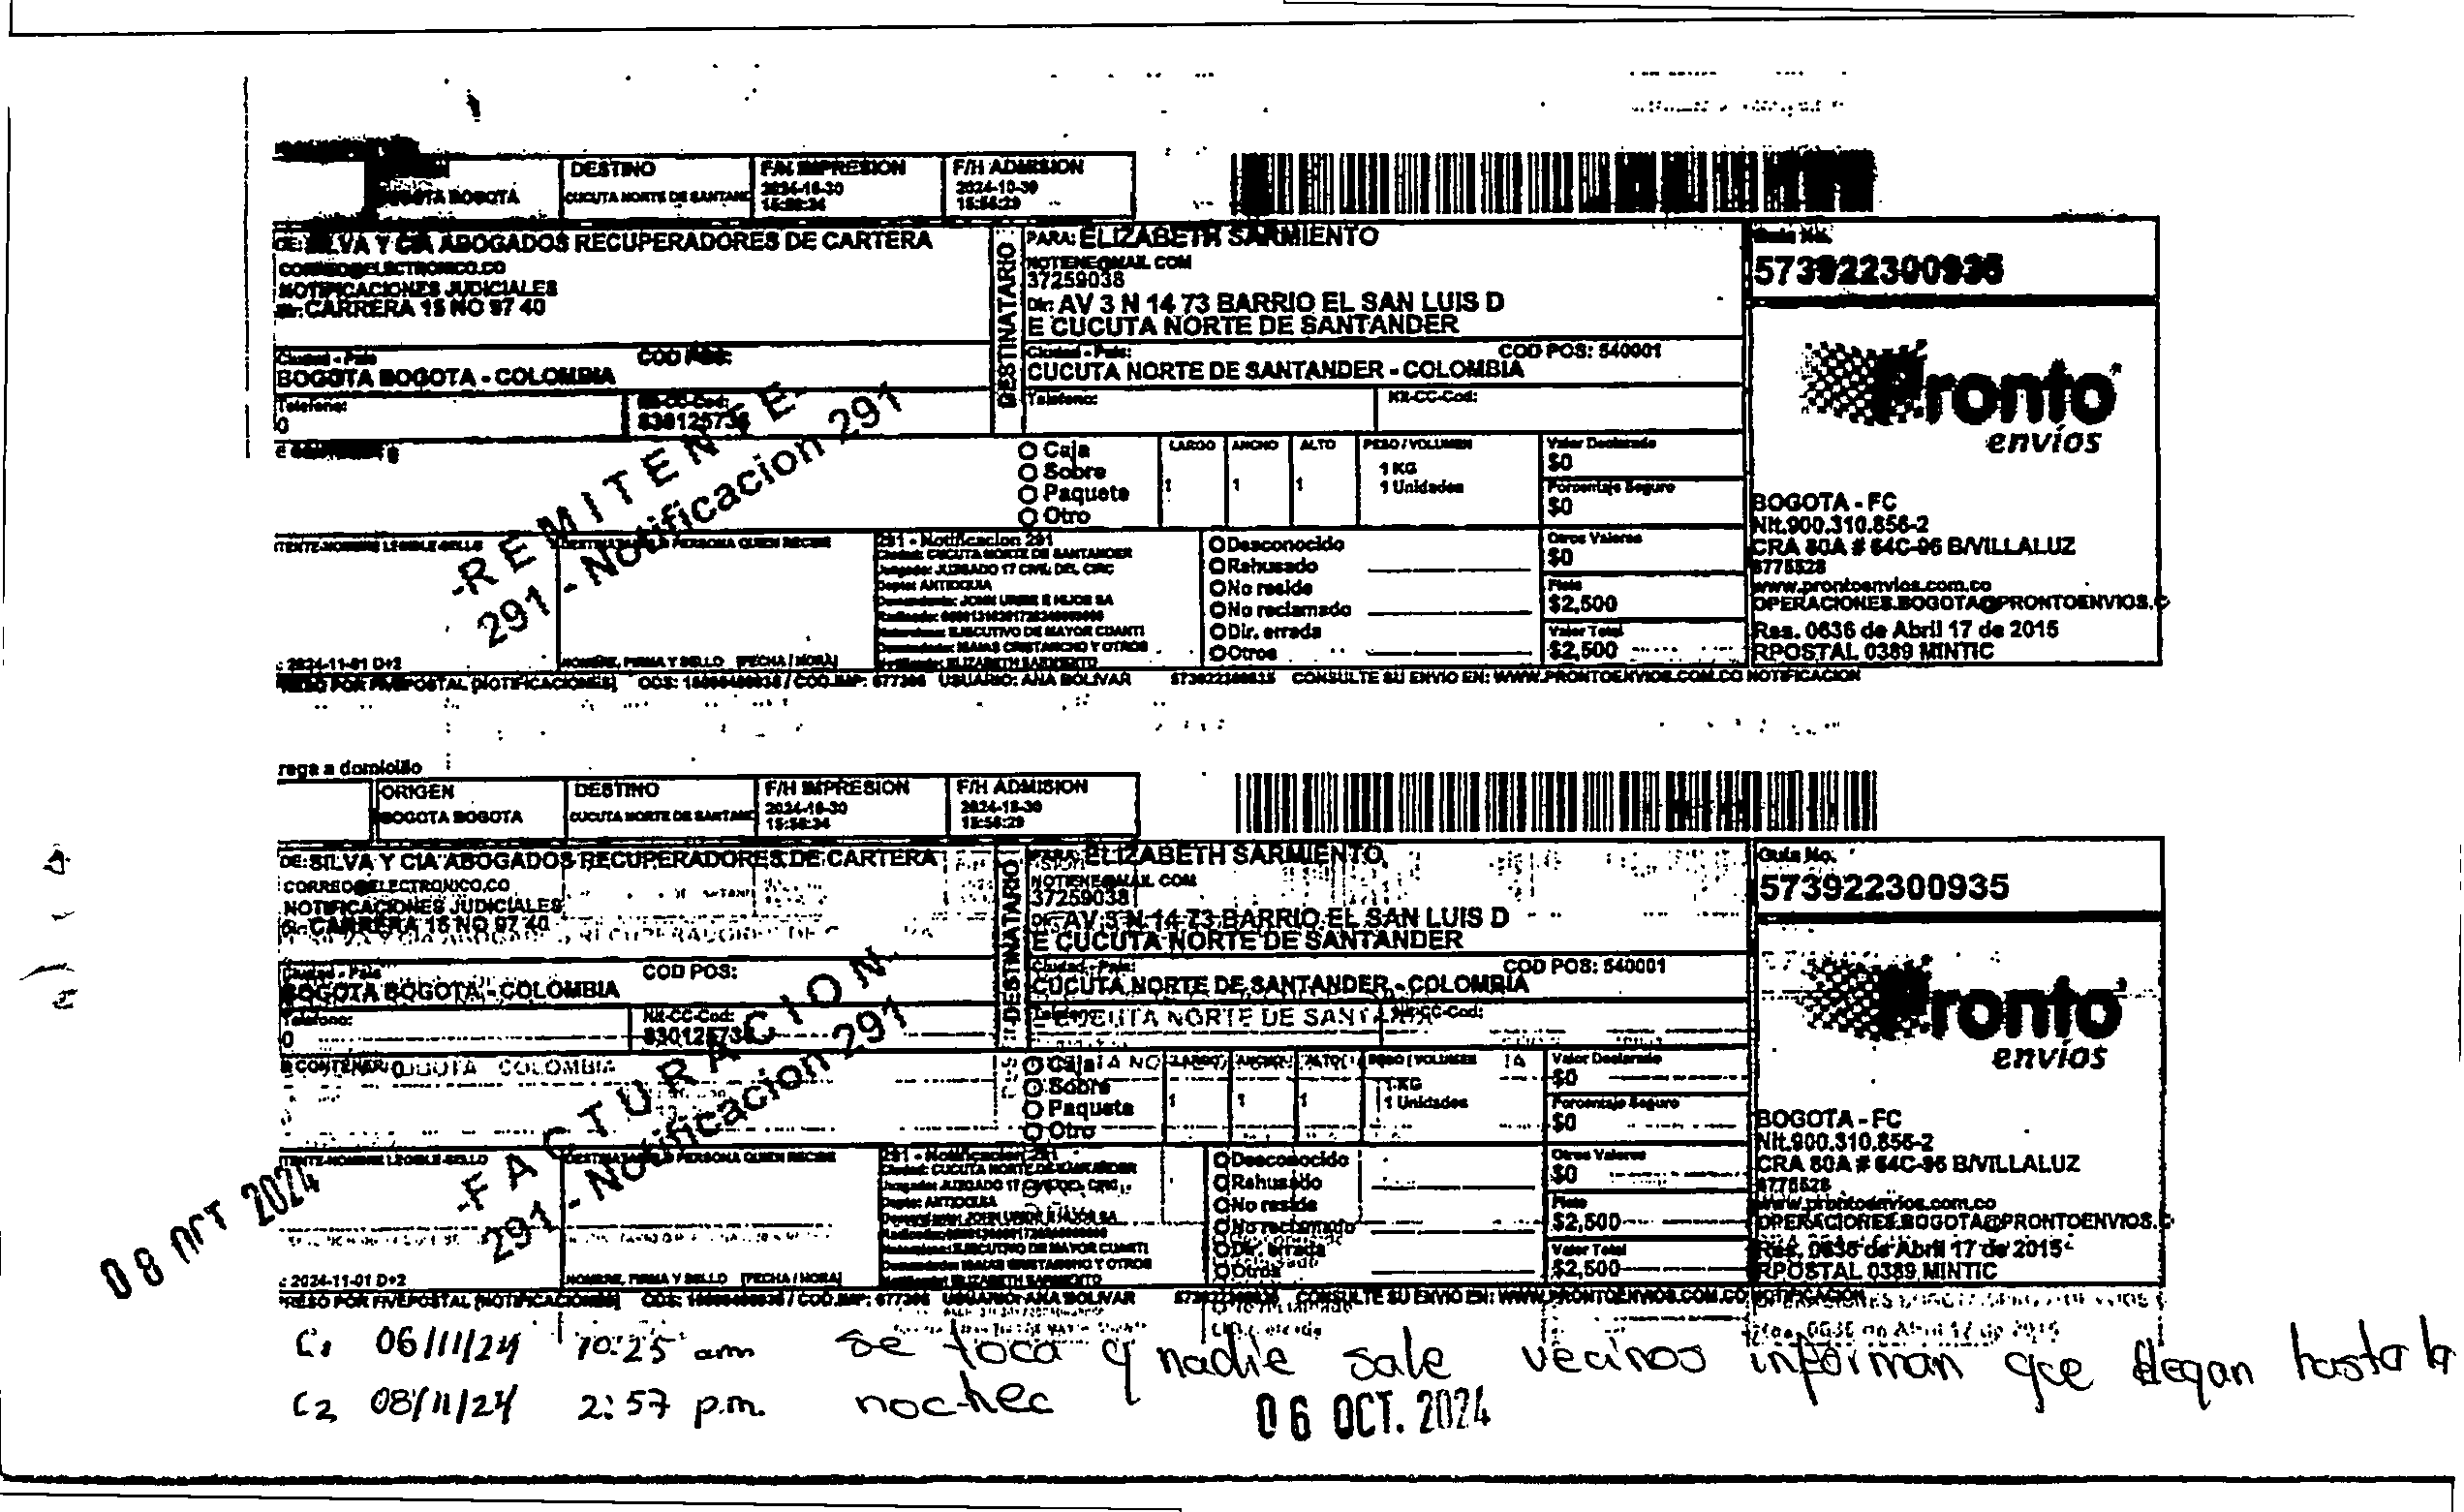 DESTINO
F/H IMPRESION
F/H ADMISION
BOGOTA
CUCUTA NORTE DE SANTAND
15:56:29
DE: SILVA Y CIA ABOGADOS RECUPERADORES DE CARTERA
CORREO@ELECTRONICO.CO
NOTIFICACIONES JUDICIALES
Dir: CARRERA 15 NO 97 40
Ciudad - Pais
COD POS:
BOGOTA BOGOTA - COLOMBIA
Telefono:
0
Nit-CC-Cod:
830125736
DESTINATARIO
PARA: ELIZABETH SARMIENTO
NOTIENE@MAIL COM
37259038
Dir: AV 3 N 14 73 BARRIO EL SAN LUIS D
E CUCUTA NORTE DE SANTANDER
Ciudad - Pais:
COD POS: 540001
CUCUTA NORTE DE SANTANDER - COLOMBIA
Telefono:
Nit-CC-Cod:
Guia No.
573922300935
Pronto
envíos
-REMITENTE-
291 - Notificacion 291
Caja
Sobre
Paquete
Otro
LARGO ANCHO ALTO PESO / VOLUMEN
1 1 1 1 KG
1 Unidades
Valor Declarado
$0
Porcentaje Seguro
$0
Otros Valores
$0
Flete
$2,500
Valor Total
$2,500
BOGOTA - FC
Nit.900.310.856-2
CRA 80A # 64C-96 B/VILLALUZ
www.prontoenvios.com.co
OPERACIONES.BOGOTA@PRONTOENVIOS.C
Res. 0636 de Abril 17 de 2015
RPOSTAL 0389 MINTIC
DESTINATARIO PERSONA QUIEN RECIBE
291 - Notificacion 291
Ciudad: CUCUTA NORTE DE SANTANDER
Juzgado: JUZGADO 17 CIVIL DEL CIRC
Depto: ANTIOQUIA
Demandante: JOHN URIBE E HIJOS SA
Naturaleza: EJECUTIVO DE MAYOR CUANTI
Demandado: ISAIAS CRISTANCHO Y OTROS
Notificado: ELIZABETH SARMIENTO
Desconocido
Rehusado
No reside
No reclamado
Dir. errada
Otros
: 2024-11-01 D+2
NOMBRE, FIRMA Y SELLO [FECHA / HORA]
USUARIO: ANA BOLIVAR
573922300935 CONSULTE SU ENVIO EN: WWW.PRONTOENVIOS.COM.CO NOTIFICACION
rega a domicilio
ORIGEN
DESTINO
F/H IMPRESION
F/H ADMISION
BOGOTA BOGOTA
CUCUTA NORTE DE SANTAND
15:56:34
15:56:29
DE: SILVA Y CIA ABOGADOS RECUPERADORES DE CARTERA
CORREO@ELECTRONICO.CO
NOTIFICACIONES JUDICIALES
CARRERA 15 NO 97 40
Ciudad - Pais
COD POS:
BOGOTA BOGOTA - COLOMBIA
Telefono:
0
Nit-CC-Cod:
830125736
DESTINATARIO
PARA: ELIZABETH SARMIENTO
NOTIENE@MAIL COM
37259038
AV 3 N 14 73 BARRIO EL SAN LUIS D
E CUCUTA NORTE DE SANTANDER
Ciudad - Pais:
COD POS: 540001
CUCUTA NORTE DE SANTANDER - COLOMBIA
Guia No.
573922300935
Pronto
envíos
-FACTURACION-
291 - Notificacion 291
Caja
Sobre
Paquete
Otro
1 1 1 1 KG
1 Unidades
Valor Declarado
$0
Porcentaje Seguro
$0
Otros Valores
$0
Flete
$2,500
Valor Total
$2,500
BOGOTA - FC
Nit.900.310.856-2
CRA 80A # 64C-96 B/VILLALUZ
www.prontoenvios.com.co
OPERACIONES.BOGOTA@PRONTOENVIOS.C
Res. 0636 de Abril 17 de 2015
RPOSTAL 0389 MINTIC
Desconocido
Rehusado
No reside
No reclamado
Dir. errada
Otros
08 OCT 2024
: 2024-11-01 D+2
NOMBRE, FIRMA Y SELLO [FECHA / HORA]
USUARIO: ANA BOLIVAR
CONSULTE SU ENVIO EN: WWW.PRONTOENVIOS.COM.CO NOTIFICACION
C1 06/11/24 10:25 am se toca y nadie sale vecinos informan que llegan hasta la
C2 08/11/24 2:57 p.m. noche
06 OCT. 2024